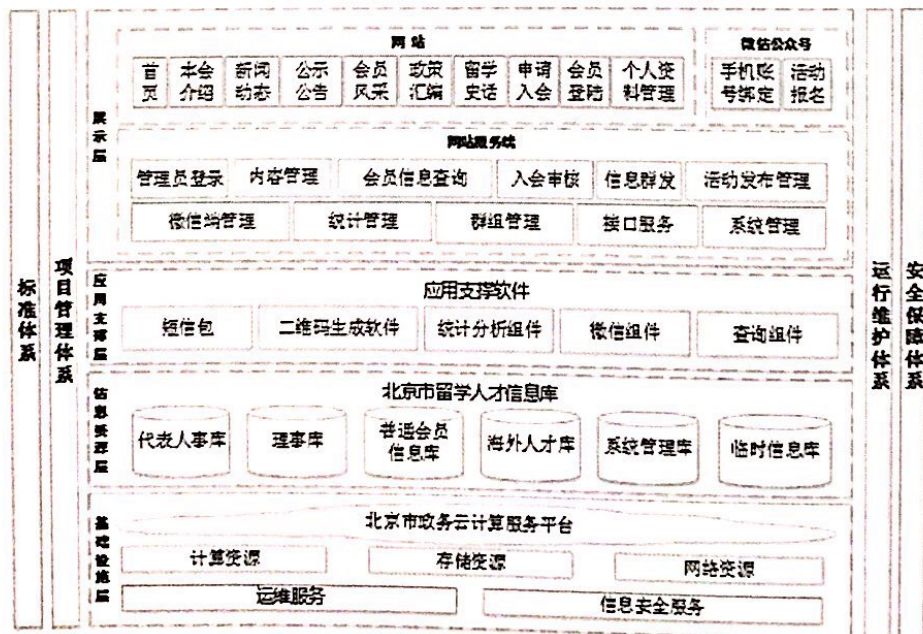 网站
首页
本会介绍
新闻动态
公示公告
会员风采
政策汇编
留学史话
申请入会
会员登陆
个人资料管理
微信公众号
手机账号绑定
活动报名
展示层
网站服务端
管理员登录
内容管理
会员信息查询
入会审核
信息群发
活动发布管理
微信端管理
统计管理
群组管理
接口服务
系统管理
标准体系
项目管理体系
应用支撑层
应用支撑软件
短信包
二维码生成软件
统计分析组件
微信组件
查询组件
运行维护体系
安全保障体系
信息资源层
北京市留学人才信息库
代表人事库
理事库
普通会员信息库
海外人才库
系统管理库
临时信息库
基础设施层
北京市政务云计算服务平台
计算资源
存储资源
网络资源
运维服务
信息安全服务